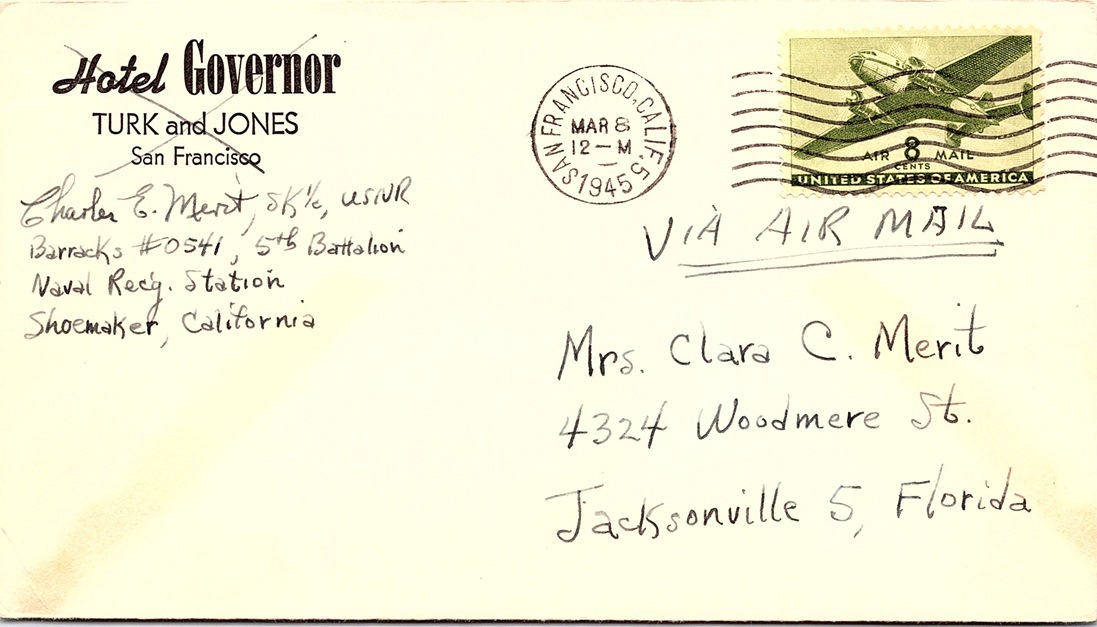 Hotel Governor
TURK and JONES
San Francisco
Charles E. Merit, SK 1/c, USNR
Barracks #0541, 5th Battalion
Naval Rec'g. Station
Shoemaker, California
SAN FRANCISCO, CALIF. 5
MAR 8
12 - M
1945
AIR 8 MAIL
CENTS
UNITED STATES OF AMERICA
VIA AIR MAIL
Mrs. Clara C. Merit
4324 Woodmere St.
Jacksonville 5, Florida